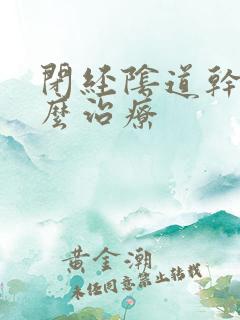 閉经陰道幹
麼治療
黄金潮
未经同意禁止转载